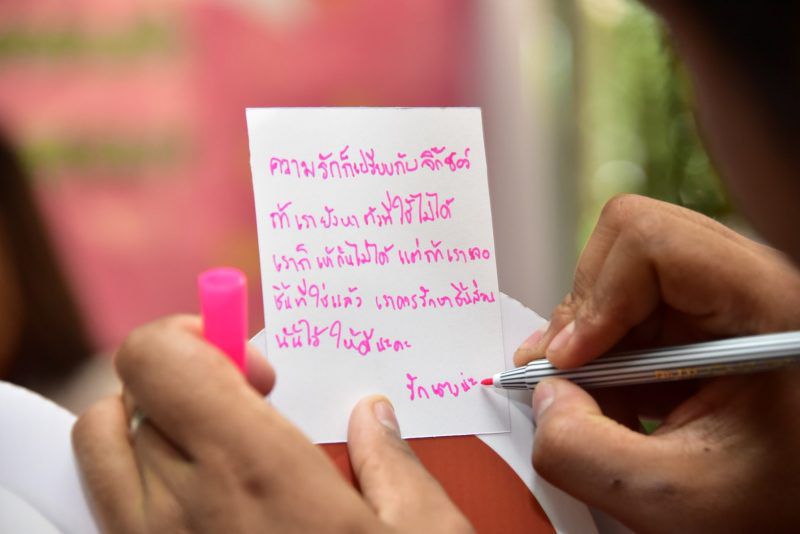 ความรักก็เปรียบกับจิ๊กซอว์
ถ้าเรายังหาตัวที่ใช้ไม่ได้
เราก็แก้มันไม่ได้ แต่ถ้าเราเจอ
ชิ้นที่ใช่แล้ว เราควรรักษาชิ้นส่วน
นั้นไว้ ให้ดีนะคะ
รัก นะ